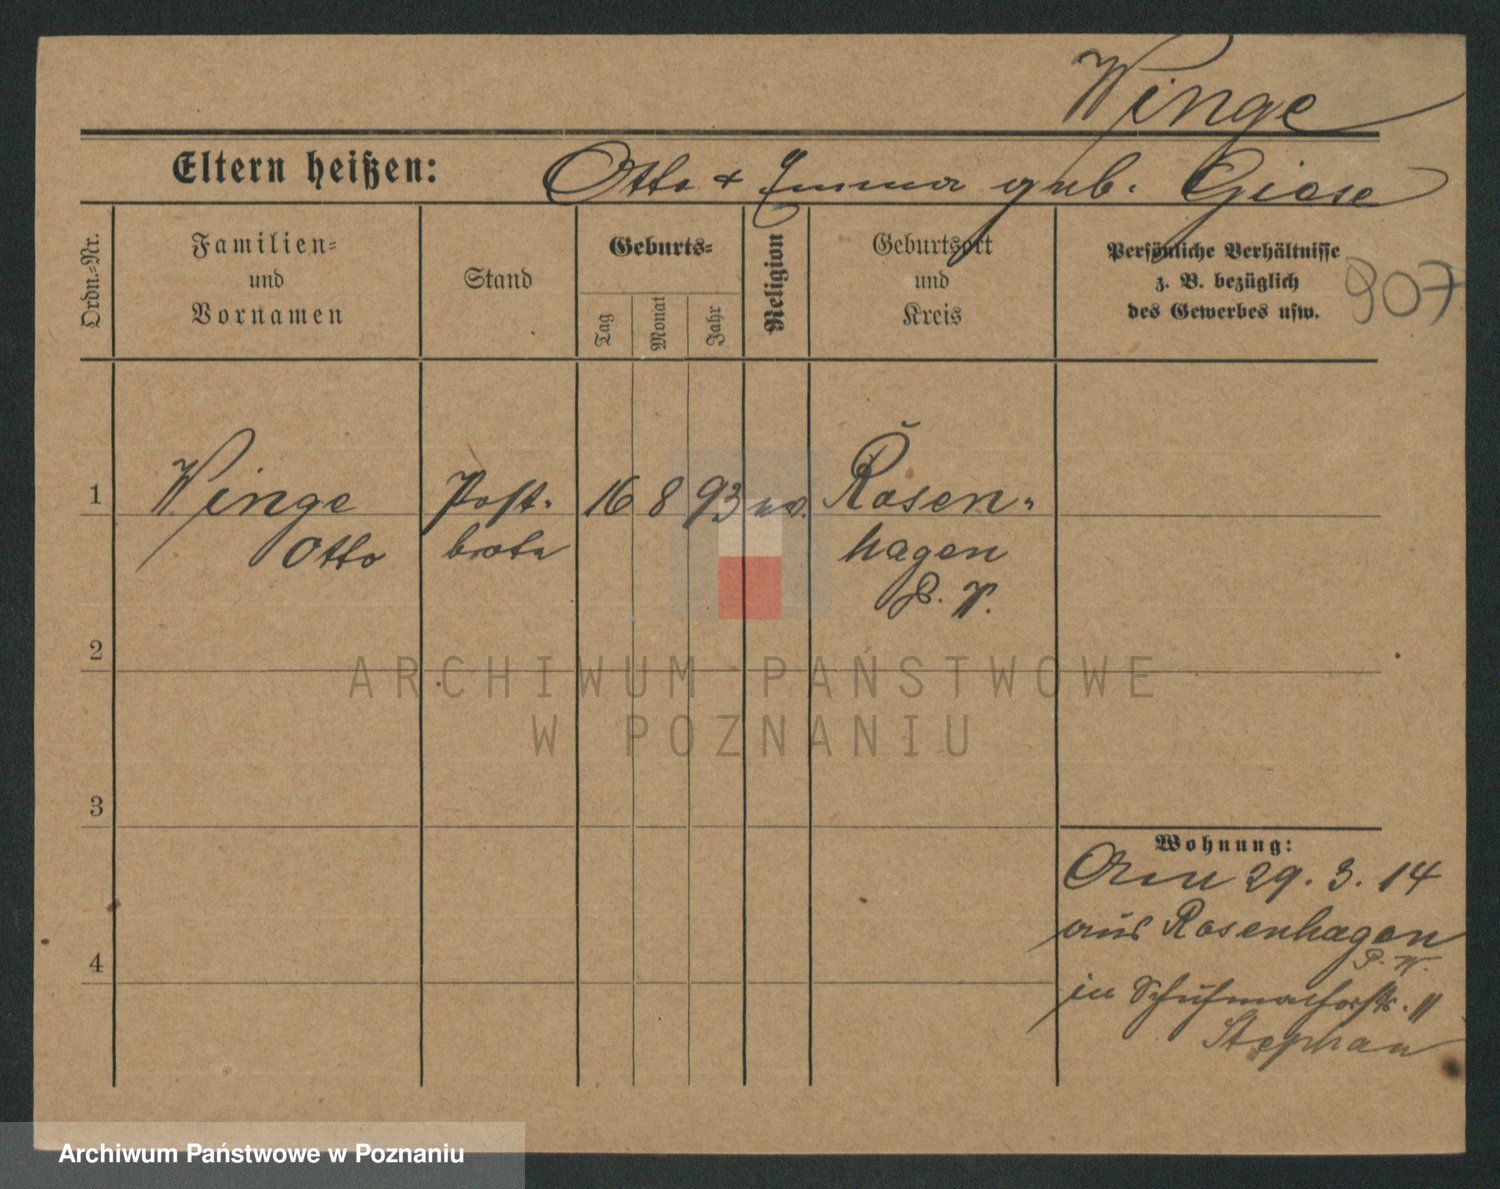 Winge
Eltern heißen: Otto + Emma geb. Giese
Ordn.-Nr.
Familien-
und
Vornamen
Stand
Geburts-
Tag
Monat
Jahr
Religion
Geburtsort
und
Kreis
Persönliche Verhältnisse
z. B. bezüglich
des Gewerbes usw.
907
1 Winge Post- 16 8 93 ev. Rosen-
Otto bote hagen
P. W.
2
3
4
Wohnung:
Am 29. 3. 14
aus Rosenhagen
P. W.
in Schuhmacherstr. 11
Stephan
ARCHIWUM PAŃSTWOWE
W POZNANIU
Archiwum Państwowe w Poznaniu